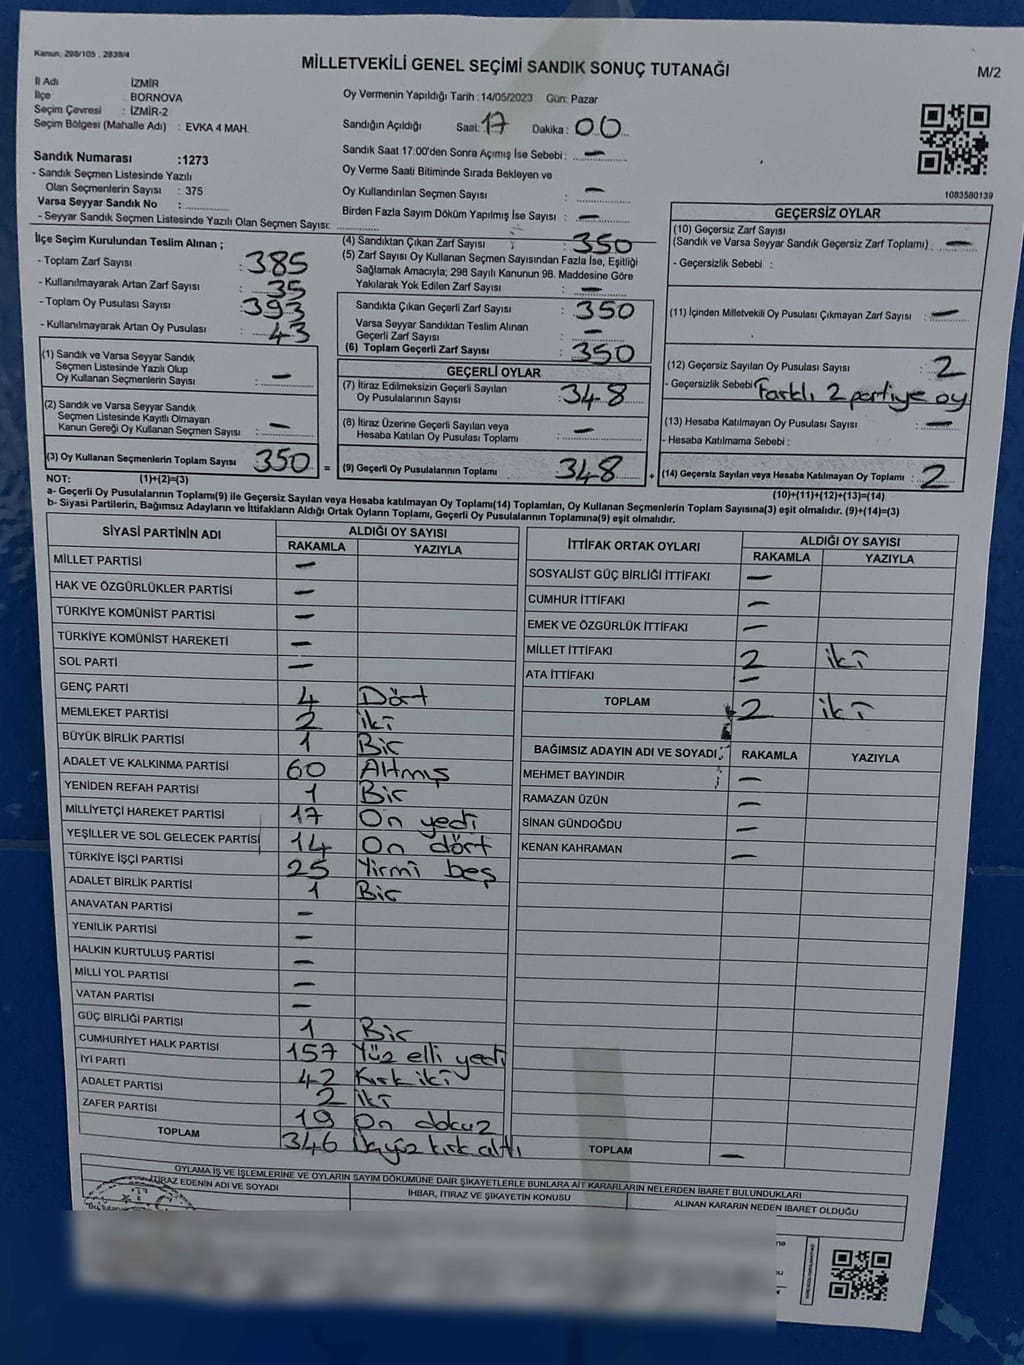 Kanun, 298/105 , 2839/4
MİLLETVEKİLİ GENEL SEÇİMİ SANDIK SONUÇ TUTANAĞI
M/2
İl Adı : İZMİR
İlçe : BORNOVA
Seçim Çevresi : İZMİR-2
Seçim Bölgesi (Mahalle Adı) : EVKA 4 MAH.
Sandık Numarası :1273
- Sandık Seçmen Listesinde Yazılı
Olan Seçmenlerin Sayısı : 375
Varsa Seyyar Sandık No :
- Seyyar Sandık Seçmen Listesinde Yazılı Olan Seçmen Sayısı:
Oy Vermenin Yapıldığı Tarih :14/05/2023 Gün: Pazar
Sandığın Açıldığı Saat: 17 Dakika : 00
Sandık Saat 17:00'den Sonra Açımış İse Sebebi : —
Oy Verme Saati Bitiminde Sırada Bekleyen ve
Oy Kullandırılan Seçmen Sayısı : —
Birden Fazla Sayım Döküm Yapılmış İse Sayısı : —
1083580139
İlçe Seçim Kurulundan Teslim Alınan ;
- Toplam Zarf Sayısı :385
- Kullanılmayarak Artan Zarf Sayısı : 35
- Toplam Oy Pusulası Sayısı :393
- Kullanılmayarak Artan Oy Pusulası : 43
(1) Sandık ve Varsa Seyyar Sandık
Seçmen Listesinde Yazılı Olup
Oy Kullanan Seçmenlerin Sayısı : —
(2) Sandık ve Varsa Seyyar Sandık
Seçmen Listesinde Kayıtlı Olmayan
Kanun Gereği Oy Kullanan Seçmen Sayısı : —
(3) Oy Kullanan Seçmenlerin Toplam Sayısı 350 =
(4) Sandıktan Çıkan Zarf Sayısı : 350
(5) Zarf Sayısı Oy Kullanan Seçmen Sayısından Fazla İse, Eşitliği
Sağlamak Amacıyla; 298 Sayılı Kanunun 98. Maddesine Göre
Yakılarak Yok Edilen Zarf Sayısı : —
Sandıkta Çıkan Geçerli Zarf Sayısı : 350
Varsa Seyyar Sandıktan Teslim Alınan
Geçerli Zarf Sayısı : —
(6) Toplam Geçerli Zarf Sayısı : 350
GEÇERLİ OYLAR
(7) İtiraz Edilmeksizin Geçerli Sayılan
Oy Pusulalarının Sayısı :348
(8) İtiraz Üzerine Geçerli Sayılan veya
Hesaba Katılan Oy Pusulası Toplamı : —
(9) Geçerli Oy Pusulalarının Toplamı :348 +
GEÇERSİZ OYLAR
(10) Geçersiz Zarf Sayısı
(Sandık ve Varsa Seyyar Sandık Geçersiz Zarf Toplamı) : —
- Geçersizlik Sebebi :
(11) İçinden Milletvekili Oy Pusulası Çıkmayan Zarf Sayısı : —
(12) Geçersiz Sayılan Oy Pusulası Sayısı : 2
- Geçersizlik Sebebi Farklı 2 partiye oy
(13) Hesaba Katılmayan Oy Pusulası Sayısı : —
- Hesaba Katılmama Sebebi :
(14) Geçersiz Sayılan veya Hesaba Katılmayan Oy Toplamı : 2
NOT: (1)+(2)=(3)
(10)+(11)+(12)+(13)=(14)
a- Geçerli Oy Pusulalarının Toplamı(9) ile Geçersiz Sayılan veya Hesaba katılmayan Oy Toplamı(14) Toplamları, Oy Kullanan Seçmenlerin Toplam Sayısına(3) eşit olmalıdır. (9)+(14)=(3)
b- Siyasi Partilerin, Bağımsız Adayların ve İttifakların Aldığı Ortak Oyların Toplamı, Geçerli Oy Pusulalarının Toplamına(9) eşit olmalıdır.
SİYASİ PARTİNİN ADI ALDIĞI OY SAYISI
RAKAMLA YAZIYLA
MİLLET PARTİSİ —
HAK VE ÖZGÜRLÜKLER PARTİSİ —
TÜRKİYE KOMÜNİST PARTİSİ —
TÜRKİYE KOMÜNİST HAREKETİ —
SOL PARTİ —
GENÇ PARTİ 4 Dört
MEMLEKET PARTİSİ 2 iki
BÜYÜK BİRLİK PARTİSİ 1 Bir
ADALET VE KALKINMA PARTİSİ 60 Altmış
YENİDEN REFAH PARTİSİ 1 Bir
MİLLİYETÇİ HAREKET PARTİSİ 17 On yedi
YEŞİLLER VE SOL GELECEK PARTİSİ 14 On dört
TÜRKİYE İŞÇİ PARTİSİ 25 Yirmi beş
ADALET BİRLİK PARTİSİ 1 Bir
ANAVATAN PARTİSİ —
YENİLİK PARTİSİ —
HALKIN KURTULUŞ PARTİSİ —
MİLLİ YOL PARTİSİ —
VATAN PARTİSİ —
GÜÇ BİRLİĞİ PARTİSİ 1 Bir
CUMHURİYET HALK PARTİSİ 157 Yüz elli yedi
İYİ PARTİ 42 Kırk iki
ADALET PARTİSİ 2 İki
ZAFER PARTİSİ 19 On dokuz
TOPLAM 346 Üçyüz kırk altı
İTTİFAK ORTAK OYLARI ALDIĞI OY SAYISI
RAKAMLA YAZIYLA
SOSYALİST GÜÇ BİRLİĞİ İTTİFAKI —
CUMHUR İTTİFAKI —
EMEK VE ÖZGÜRLÜK İTTİFAKI —
MİLLET İTTİFAKI 2 iki
ATA İTTİFAKI —
TOPLAM 2 iki
BAĞIMSIZ ADAYIN ADI VE SOYADI RAKAMLA YAZIYLA
MEHMET BAYINDIR —
RAMAZAN ÜZÜN —
SİNAN GÜNDOĞDU —
KENAN KAHRAMAN —
TOPLAM —
OYLAMA İŞ VE İŞLEMLERİNE VE OYLARIN SAYIM DÖKÜMÜNE DAİR ŞİKAYETLERLE BUNLARA AİT KARARLARIN NELERDEN İBARET BULUNDUKLARI
İTİRAZ EDENİN ADI VE SOYADI
İHBAR, İTİRAZ VE ŞİKAYETİN KONUSU
ALINAN KARARIN NEDEN İBARET OLDUĞU